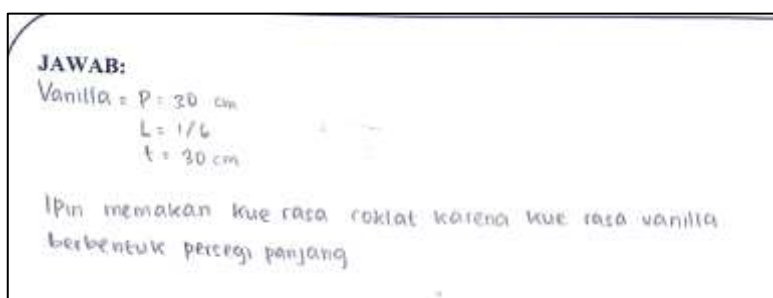 JAWAB:
Vanilla = P = 30 cm
L = 1/6
t = 30 cm
Ipin memakan kue rasa coklat karena kue rasa vanilla
berbentuk persegi panjang